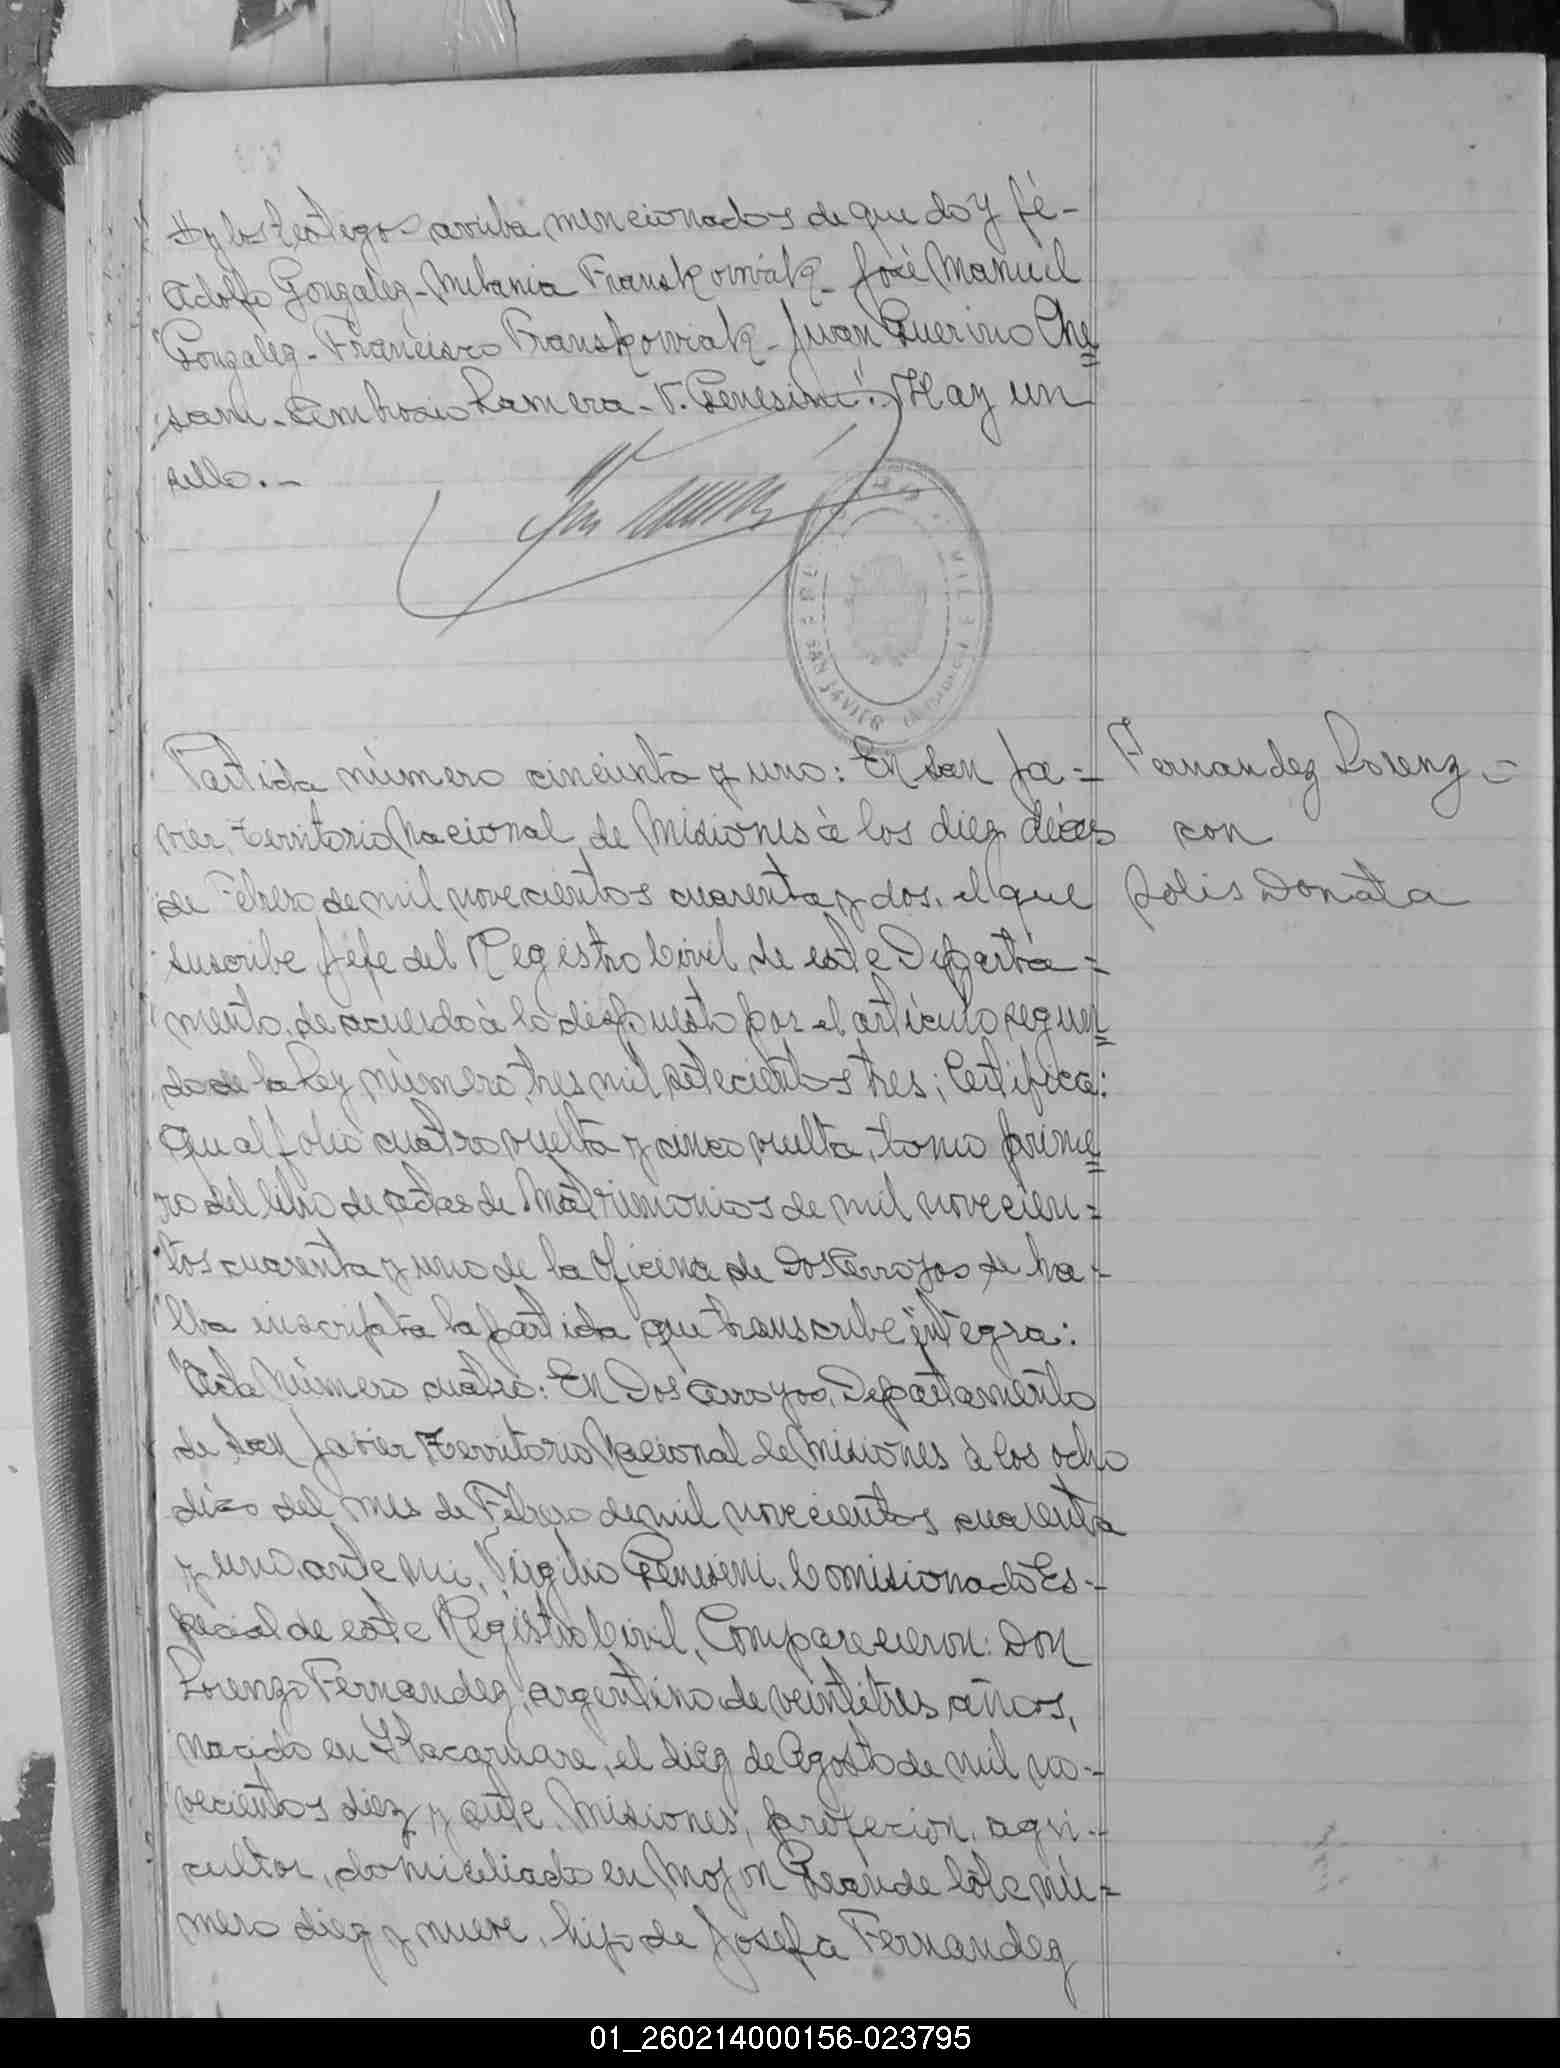 y los testigos arriba mencionados de que doy fé-
Adolfo Gonzalez - Melania Franskowiak - José Manuel
Gonzalez - Francisco Franskowiak - Juan Guerino Che=
sani - Ambrosio Ramera - V. Genesini." Hay un
sello. -
SAN JAVIER
Partida número cincuenta y uno: En San Ja=
vier, Territorio Nacional de Misiones à los diez dias
de Febrero de mil novecientos cuarenta y dos, el que
suscribe Jefe del Registro Civil de este Departa=
mento, de acuerdo à lo dispuesto por el artículo segun=
do de la Ley número tres mil setecientos tres; Certifica:
Que al folio cuatro vuelta y cinco vuelta, tomo prime=
ro del libro de actas de Matrimonios de mil novecien=
tos cuarenta y uno de la Oficina de Dos Arroyos se ha-
lla inscripta la partida que transcribe íntegra:
"Acta Número cuatro: En Dos Arroyos, Departamento
de San Javier Territorio Nacional de Misiones à los ocho
dias del mes de Febrero de mil novecientos cuarenta
y uno, ante mi, Virgilio Genesini, Comisionado Es-
pecial de este Registro Civil, Comparecieron: Don
Lorenzo Fernandez, argentino de veintitres años,
nacido en Itacaruare, el diez de Agosto de mil no-
vecientos diez y siete, Misiones, profecion, agri-
cultor, domiciliado en Mojon Grande lote nú=
mero diez y nueve, hijo de Josefa Fernandez
Fernandez Lorenz =
con
Solis Donata
01_260214000156-023795